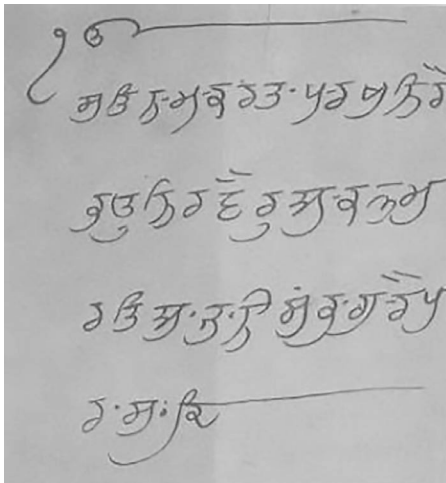 ੴ
ਸਤਿਨਾਮੁਕਰਤਾਪੁਰਖੁਨਿਰ
ਭਉਨਿਰਵੈਰੁਅਕਾਲਮੂ
ਰਤਿਅਜੂਨੀਸੈਭੰਗੁਰਪ
ਰਸਾਦਿ